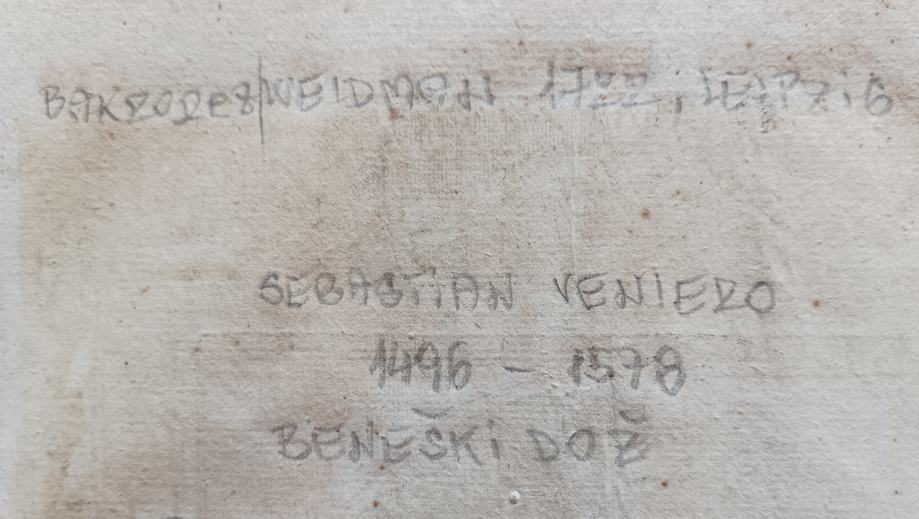 BAKROREZ|WEIDMAN 1722, LEIPZiG
SEBASTiAN VENiERO
1496 - 1578
BENEŠKi DOŽ